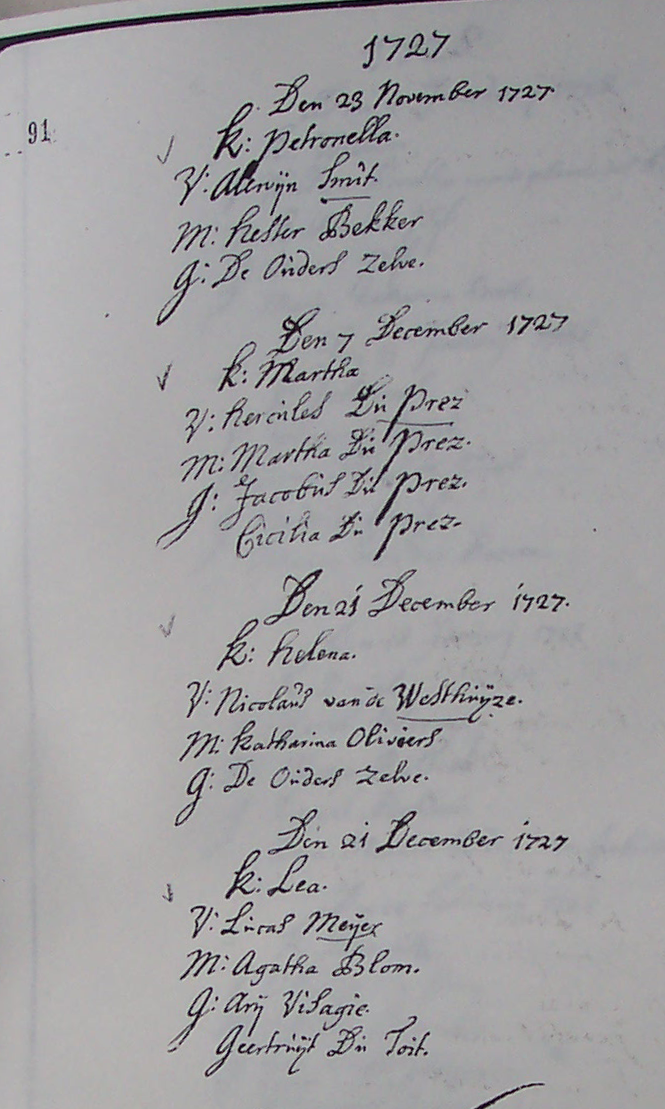 1727
Den 23 November 1727.
91
K: Petronella.
V: Alewijn Smit.
M: Hester Bekker
G: De Oüders Zelve.
Den 7 December 1727
K: Martha
V: Hercüles Dü Prez
M: Martha Dü Prez.
G: Jacobüs Dü Prez.
Cicilia Dü Prez.
Den 21 December 1727.
K: Helena.
V: Nicolaüs van de Westhüÿze.
M: Katharina Oliviers
G: De Oüders Zelve.
Den 21 December 1727
K: Lea.
V: Lücas Meÿer
M: Agatha Blom.
G: Arÿ Visagie.
Geertrüÿt Dü Toit.